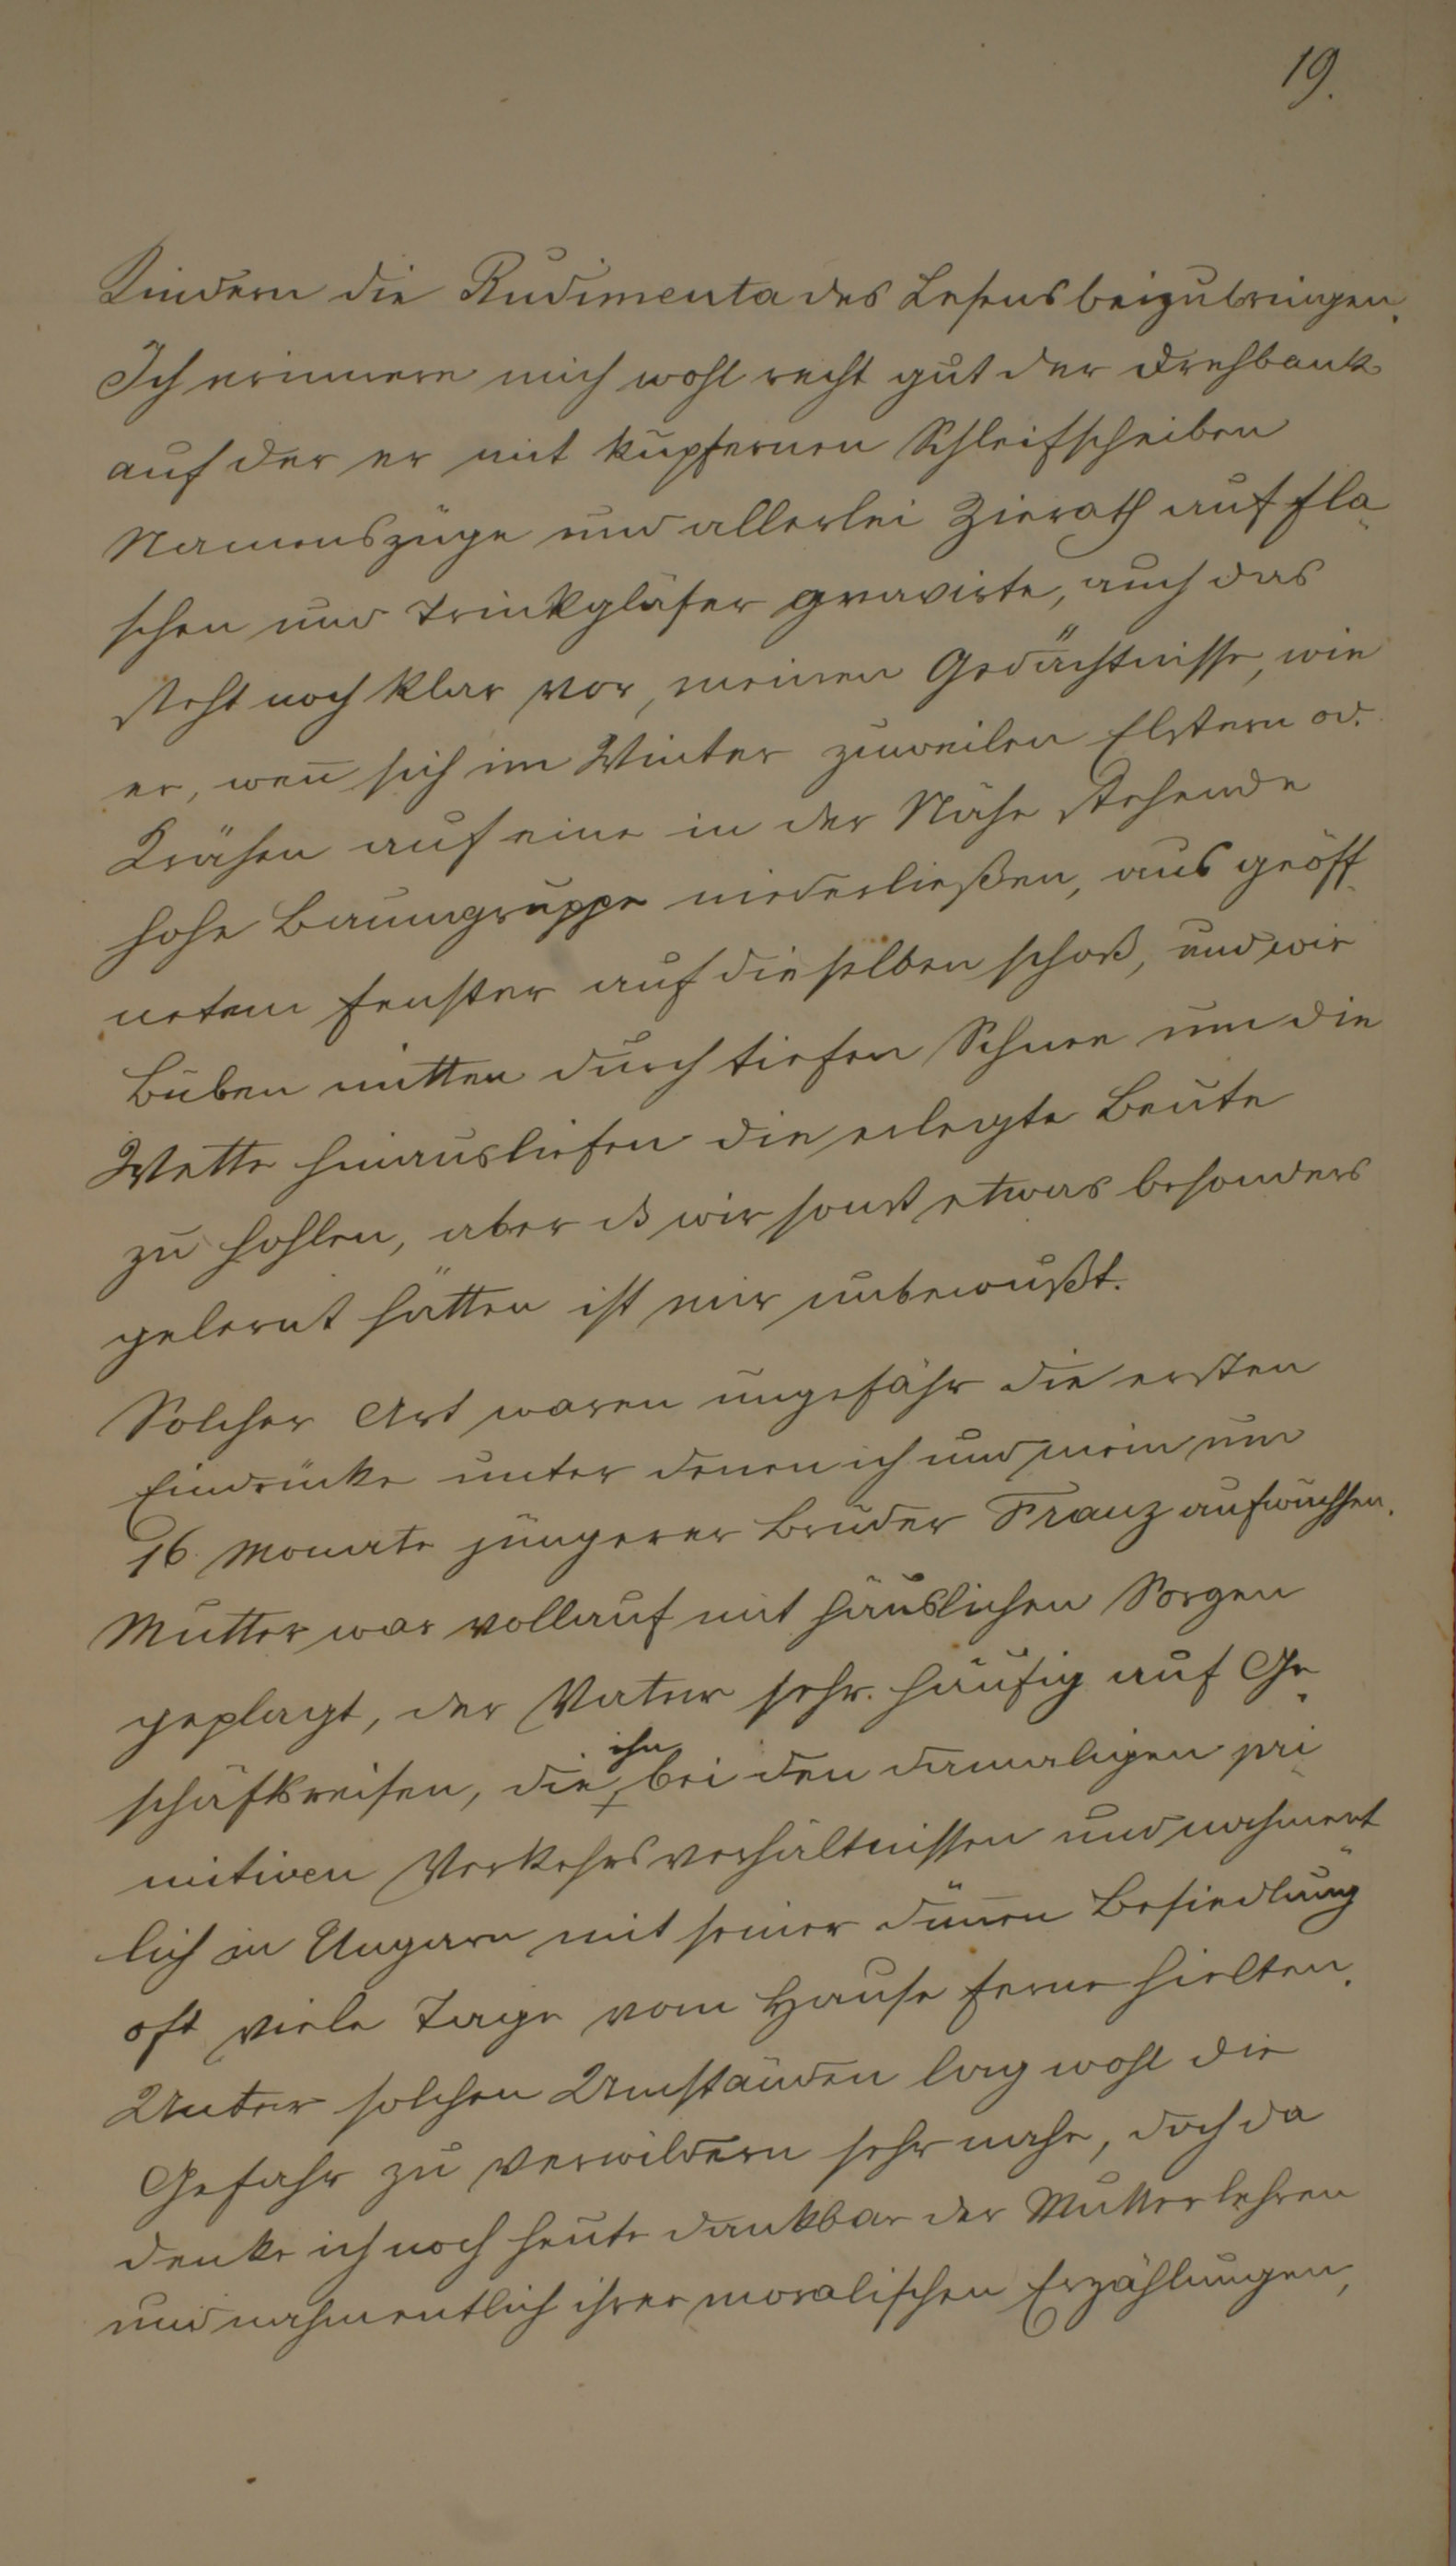 19.
Kindern die Rudimenta des Lesens beizubringen.
Ich erinnere mich wohl recht gut der Drehbank
auf der er mit kupfernen Schleifscheiben
Namenszüge und allerlei Zierath auf Fla„
schen und Trinkgläser gravirte, auch das
steht noch klar vor, meinen Gedächtnisse, wie
er, weñ sich im Winter zuweilen Elstern od.
Krähen auf eine in der Nähe stehende
hohe Baumgruppe niederließen, aus geöff„
netem Fenster auf dieselben schoß, und wir
Buben mitten durch tiefen Schnee um die
Wette hinausliefen die erlegte Beute
zu hohlen, aber ds wir sonst etwas besonders
gelernt hätten ist mir unbewußt.
Solcher Art waren ungefähr die ersten
Eindrücke unter denen ich und mein um
16 Monate jüngerer Bruder Franz aufwuchsen.
Mutter war vollauf mit häuslichen Sorgen
geplagt, der Vater sehr häufig auf Ge„
schäftsreisen, die ihn bei den damaligen pri„
mitiven Verkehrsverhältnissen und nahment„
lich in Ungarn mit seiner düñen Besiedlung
oft viele Tage vom Hause ferne hielten.
Unter solchen Umständen lag wohl die
Gefahr zu verwildern sehr nahe, doch da
denke ich noch heute dankbar der Mutterlehren
und nahmentlich ihrer moralischen Erzählungen,